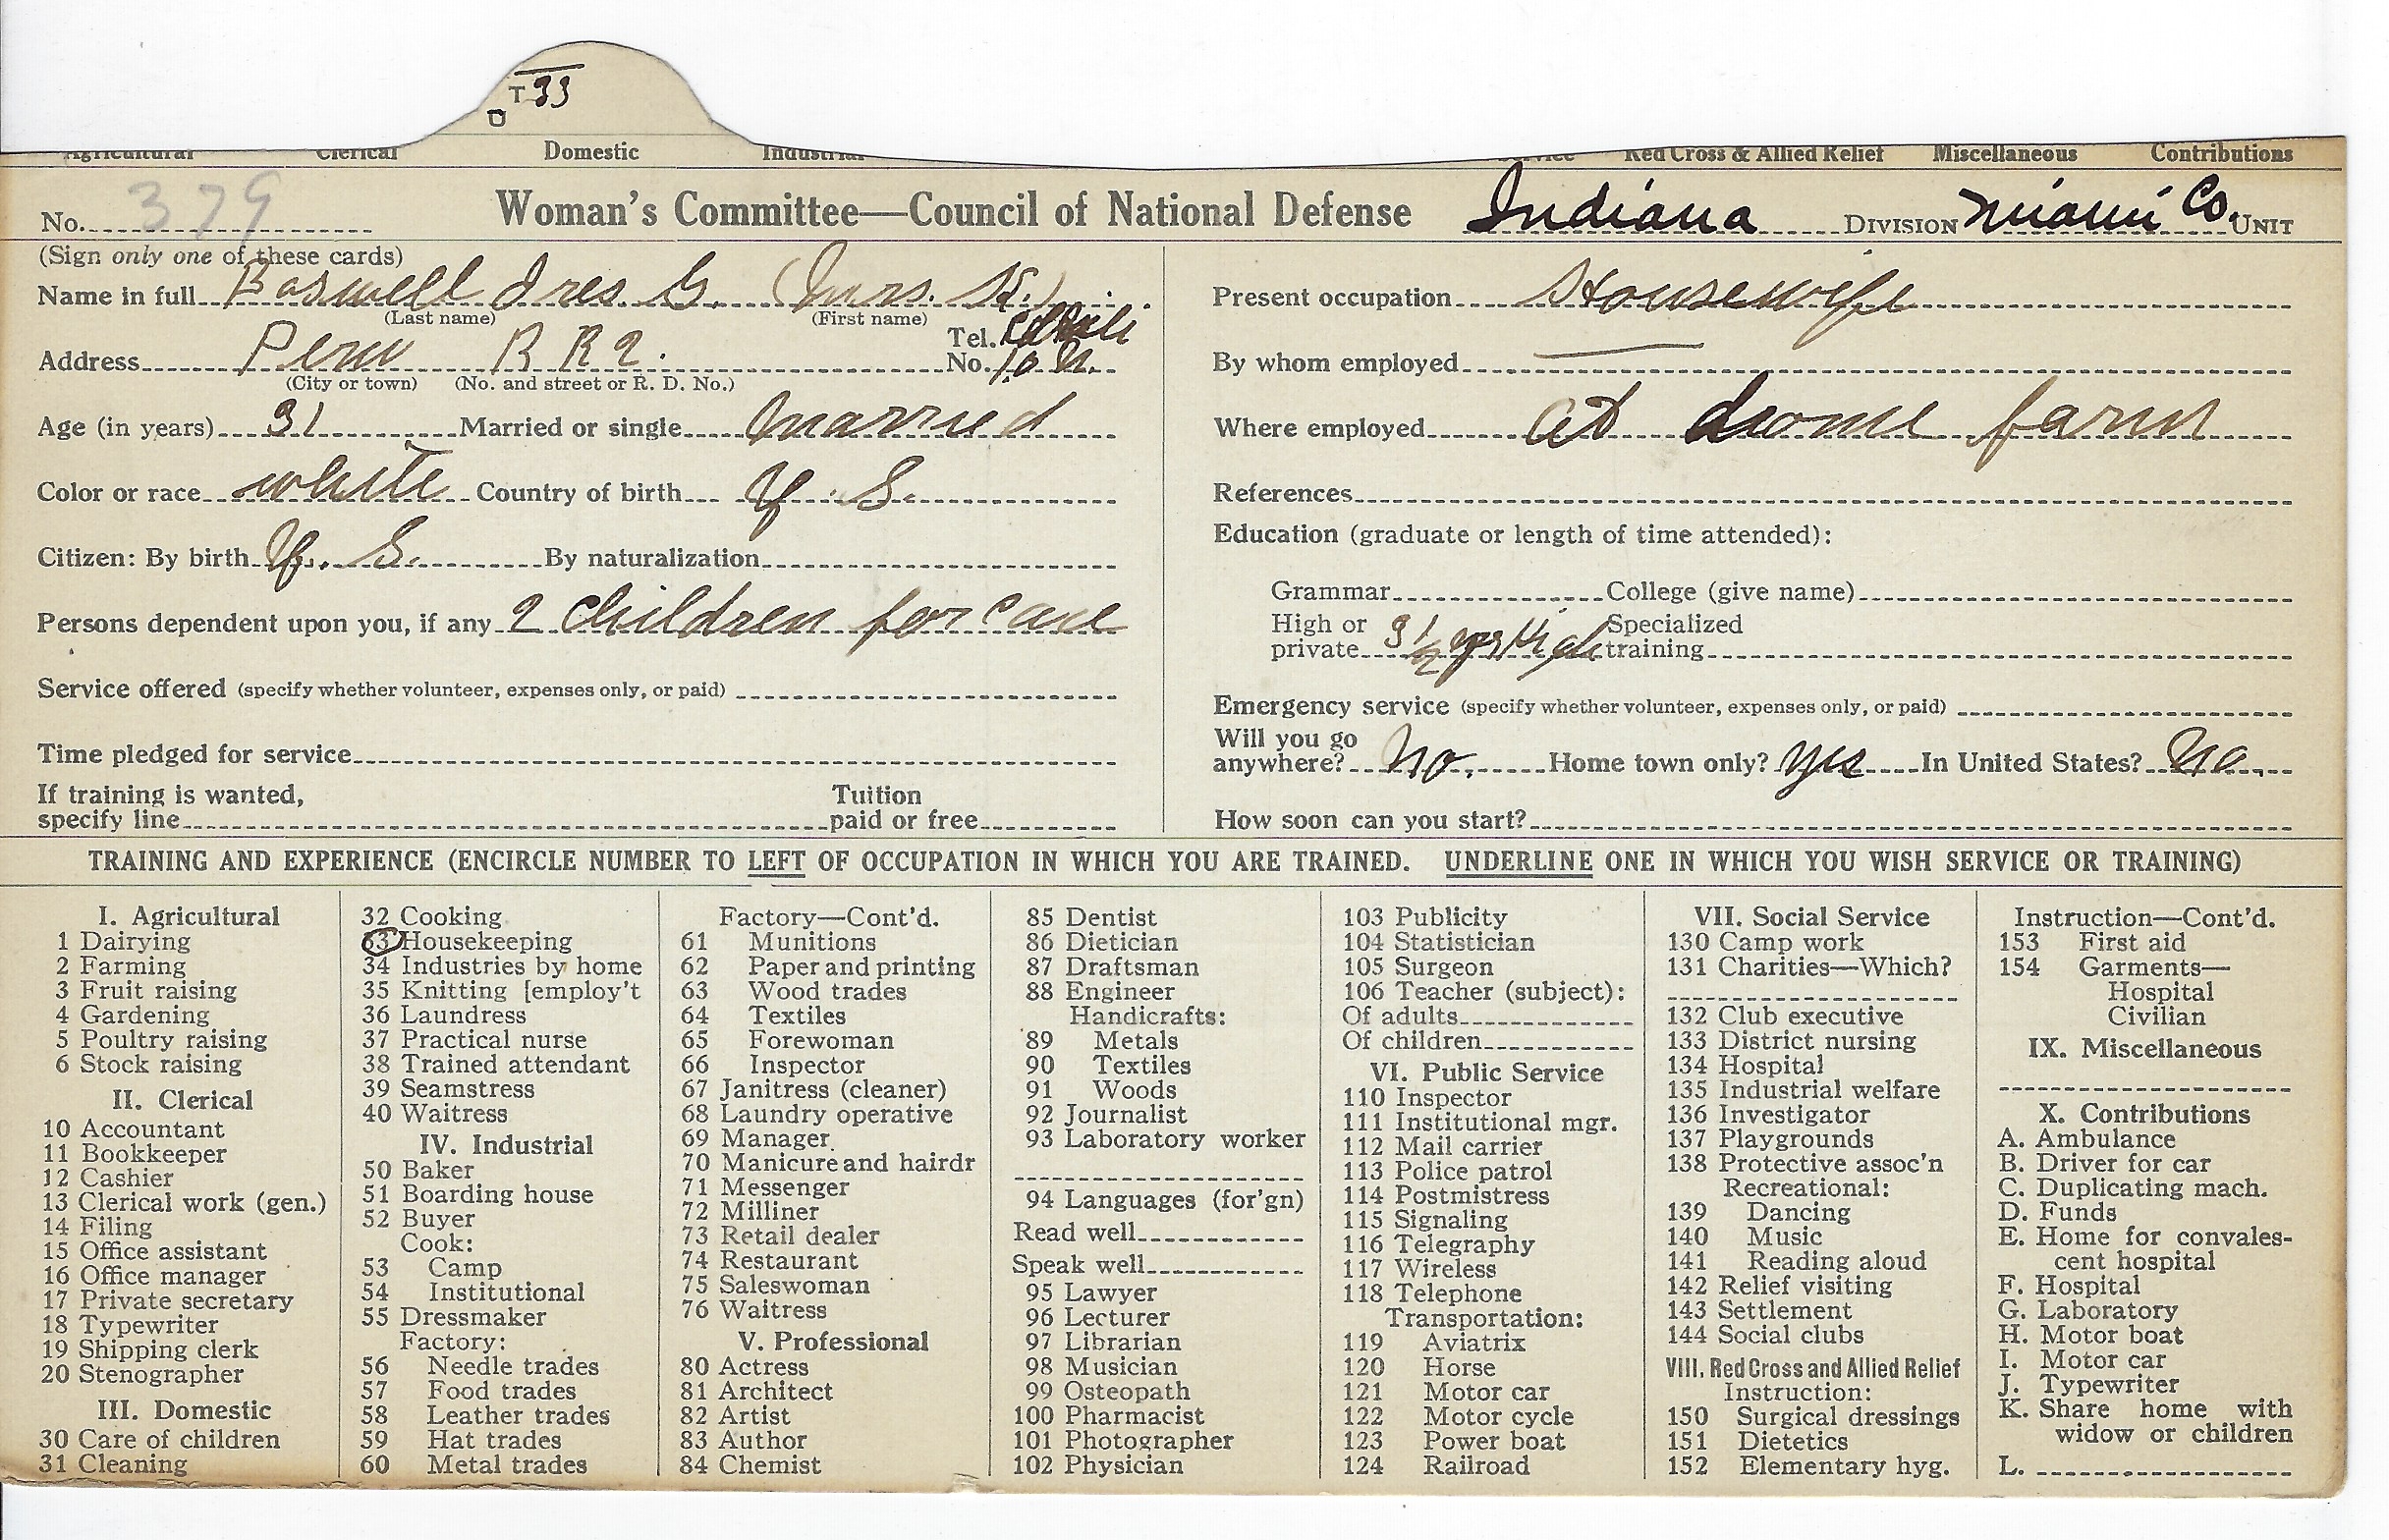 T 33
O
Agricultural Clerical Domestic Industrial Service Red Cross & Allied Relief Miscellaneous Contributions
No. 379 Woman's Committee—Council of National Defense Indiana DIVISION Miami Co. UNIT
(Sign only one of these cards)
Name in full Boswell Ires G. (Mrs. H.)
(Last name) (First name)
Address Peru R R 2. Tel. No. 10 N.
(City or town) (No. and street or R. D. No.)
Age (in years) 31 Married or single married
Color or race white Country of birth U. S.
Citizen: By birth U. S. By naturalization
Persons dependent upon you, if any 2 children for care
Service offered (specify whether volunteer, expenses only, or paid)
Time pledged for service
If training is wanted, specify line Tuition paid or free
Present occupation Housewife
By whom employed —
Where employed at home farm
References
Education (graduate or length of time attended):
Grammar College (give name)
High or private 3 1/2 yrs High Specialized training
Emergency service (specify whether volunteer, expenses only, or paid)
Will you go anywhere? No. Home town only? yes In United States? No.
How soon can you start?
TRAINING AND EXPERIENCE (ENCIRCLE NUMBER TO LEFT OF OCCUPATION IN WHICH YOU ARE TRAINED. UNDERLINE ONE IN WHICH YOU WISH SERVICE OR TRAINING)
I. Agricultural
1 Dairying
2 Farming
3 Fruit raising
4 Gardening
5 Poultry raising
6 Stock raising
II. Clerical
10 Accountant
11 Bookkeeper
12 Cashier
13 Clerical work (gen.)
14 Filing
15 Office assistant
16 Office manager
17 Private secretary
18 Typewriter
19 Shipping clerk
20 Stenographer
III. Domestic
30 Care of children
31 Cleaning
32 Cooking
33 Housekeeping
34 Industries by home
35 Knitting [employ't
36 Laundress
37 Practical nurse
38 Trained attendant
39 Seamstress
40 Waitress
IV. Industrial
50 Baker
51 Boarding house
52 Buyer
Cook:
53 Camp
54 Institutional
55 Dressmaker
Factory:
56 Needle trades
57 Food trades
58 Leather trades
59 Hat trades
60 Metal trades
Factory—Cont'd.
61 Munitions
62 Paper and printing
63 Wood trades
64 Textiles
65 Forewoman
66 Inspector
67 Janitress (cleaner)
68 Laundry operative
69 Manager
70 Manicure and hairdr
71 Messenger
72 Milliner
73 Retail dealer
74 Restaurant
75 Saleswoman
76 Waitress
V. Professional
80 Actress
81 Architect
82 Artist
83 Author
84 Chemist
85 Dentist
86 Dietician
87 Draftsman
88 Engineer
Handicrafts:
89 Metals
90 Textiles
91 Woods
92 Journalist
93 Laboratory worker
94 Languages (for'gn)
Read well
Speak well
95 Lawyer
96 Lecturer
97 Librarian
98 Musician
99 Osteopath
100 Pharmacist
101 Photographer
102 Physician
103 Publicity
104 Statistician
105 Surgeon
106 Teacher (subject):
Of adults
Of children
VI. Public Service
110 Inspector
111 Institutional mgr.
112 Mail carrier
113 Police patrol
114 Postmistress
115 Signaling
116 Telegraphy
117 Wireless
118 Telephone
Transportation:
119 Aviatrix
120 Horse
121 Motor car
122 Motor cycle
123 Power boat
124 Railroad
VII. Social Service
130 Camp work
131 Charities—Which?
132 Club executive
133 District nursing
134 Hospital
135 Industrial welfare
136 Investigator
137 Playgrounds
138 Protective assoc'n
Recreational:
139 Dancing
140 Music
141 Reading aloud
142 Relief visiting
143 Settlement
144 Social clubs
VIII. Red Cross and Allied Relief
Instruction:
150 Surgical dressings
151 Dietetics
152 Elementary hyg.
Instruction—Cont'd.
153 First aid
154 Garments—
Hospital
Civilian
IX. Miscellaneous
X. Contributions
A. Ambulance
B. Driver for car
C. Duplicating mach.
D. Funds
E. Home for convales-
cent hospital
F. Hospital
G. Laboratory
H. Motor boat
I. Motor car
J. Typewriter
K. Share home with
widow or children
L.